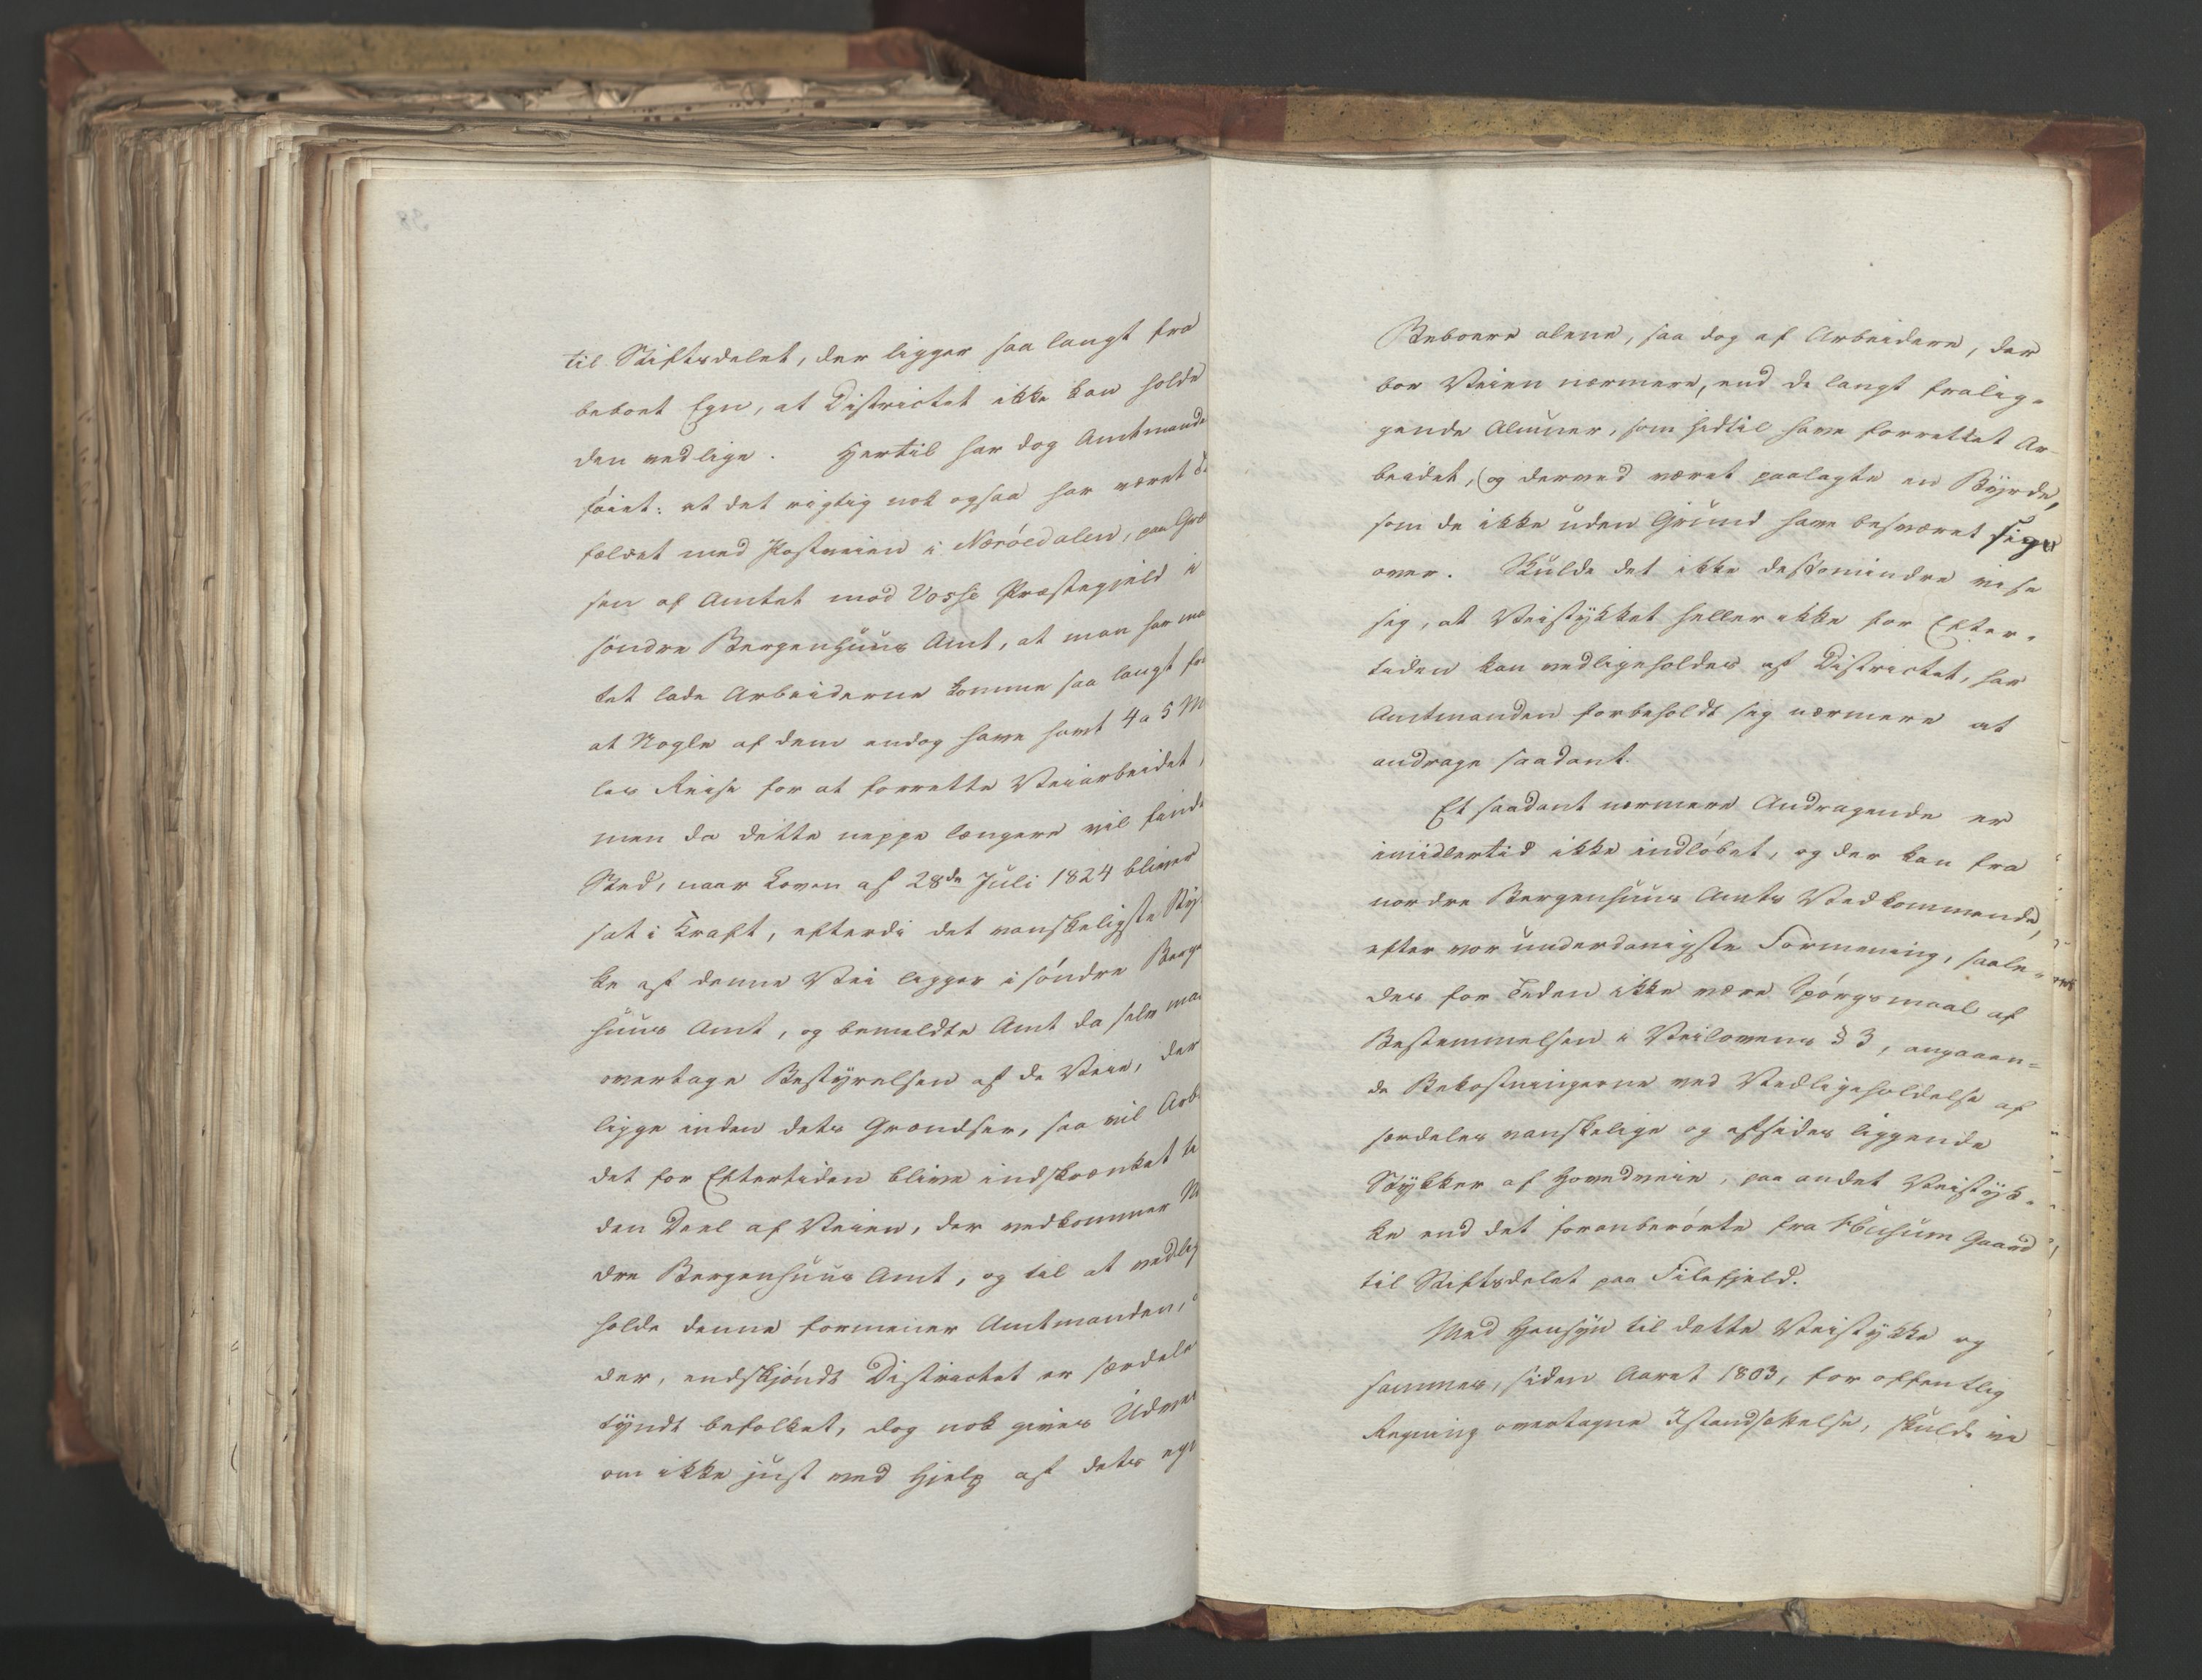 til Stiftsdelet, der ligger saa langt fra
beboet Egn, at Districtet ikke kan holde
den vedlige. Hertil har dog Amtmande
föiet: at det rigtig nok ogsaa har været
fældet med Postveien i Neröedalen, paa Græ
sen af Amtet mod Vosse Præstegjeld i
söndre Bergenhuus Amt, at man har maa
tet lade Arbeiderne komme saa langt fra
at Nogle af dem endog have havt 4 a 5 M
les Reise for at forrette Veiarbeidet,
men da dette neppe længere vil finde
Sted, naar Loven af 28de Juli 1824 bliver
sat i Kraft, efterdi det vanskeligste Styk
ke af denne Vei ligger i söndre Berge
huus Amt, og bemeldte Amt da selv maa
overtage Bestyrelsen af de Veie, der
ligge inden dets Grændser, saa vil Arb
det for Eftertiden blive indskrænket til
den Deel af Veien, der vedkommer N
dre Bergenhuus Amt, og til at vedlig
holde denne formener Amtmanden,
der, endskjöndt Districtet er særdeles
tyndt befolket, dog nok gives Udvei
om ikke just ved Hjelp af dets egn
Beboere alene, saa dog af Arbeidere, der
boe Veien nærmere, end de langt fralig-
gende Almuer, som hidtil have forrettet Ar
beidet, (og derved været paalagte en Byrde,
som de ikke uden Grund have besværet sig
over. Skulde det ikke destomindre vise
sig, at Veistykket heller ikke for Efter-
tiden kan vedligeholdes af Districtet, har
Amtmanden forbeholdt sig nærmere at
andrage saadant.
Et saadant nærmere Andragende er
imidlertid ikke indlöbet, og der kan fra
nordre Bergenhuus Amts Vedkommende,
efter vor underdanigste Formening, saale-
des for Tiden ikke være Spörgsmaal af
Bestemmelsen i Veilovens § 3, angaaen-
de Bekostningerne ved Vedligeholdelse af
særdeles vanskelige og afsides liggende
Stykker af Hovedveie, paa andet Veistyk-
ke end det foranberörte fra Husum Gaard
til Stiftsdelet paa Filefjeld.
Med Hensyn til dette Veistykke og
sammes, siden Aaret 1803, for offentlig
Regning overtagne Istandsættelse, skulde vi